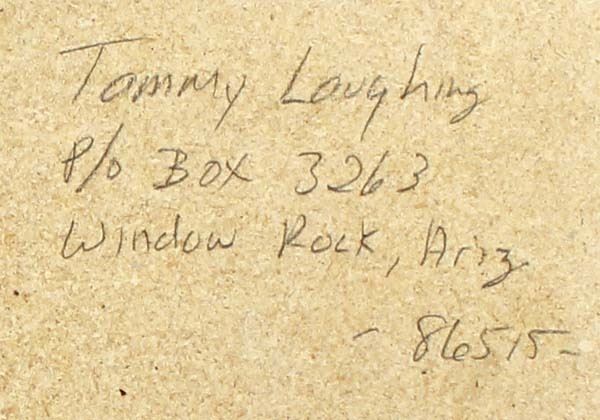 Tammy Laughing
P/o Box 3263
Window Rock, Ariz
- 86515-